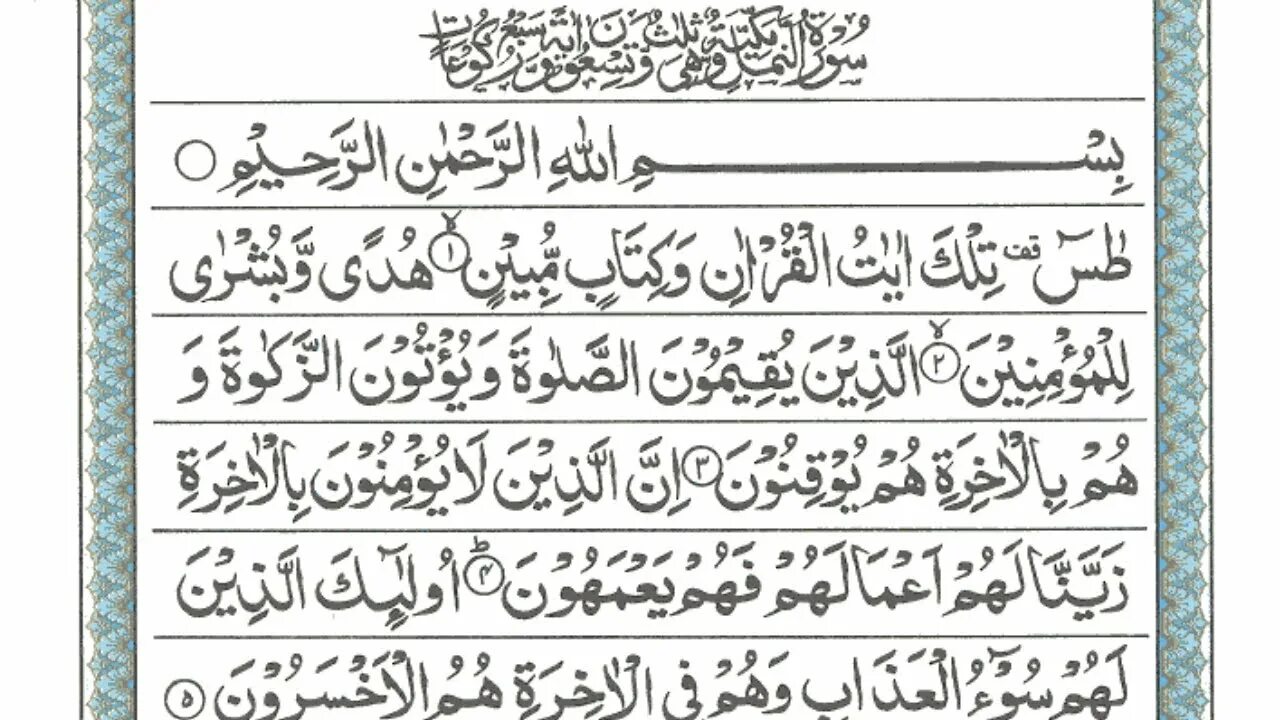 سُوْرَةُ النَّمْلِ مَكِّيَّةٌ وَّهِيَ ثَلٰثٌ وَّتِسْعُوْنَ اٰيَةً وَّسَبْعُ رُكُوْعَاتٍ
بِسْمِ اللّٰهِ الرَّحْمٰنِ الرَّحِيْمِ ○
طٰسٓ ۛقف تِلْكَ اٰيٰتُ الْقُرْاٰنِ وَكِتَابٍ مُّبِيْنٍ ۙ﴿۱﴾ هُدًى وَّبُشْرٰى
لِلْمُؤْمِنِيْنَ ۙ﴿۲﴾ الَّذِيْنَ يُقِيْمُوْنَ الصَّلٰوةَ وَيُؤْتُوْنَ الزَّكٰوةَ وَ
هُمْ بِالْاٰخِرَةِ هُمْ يُوْقِنُوْنَ ﴿۳﴾ اِنَّ الَّذِيْنَ لَا يُؤْمِنُوْنَ بِالْاٰخِرَةِ
زَيَّنَّا لَهُمْ اَعْمَالَهُمْ فَهُمْ يَعْمَهُوْنَ ؕ﴿۴﴾ اُولٰٓئِكَ الَّذِيْنَ
لَهُمْ سُوْٓءُ الْعَذَابِ وَهُمْ فِي الْاٰخِرَةِ هُمُ الْاَخْسَرُوْنَ ﴿۵﴾